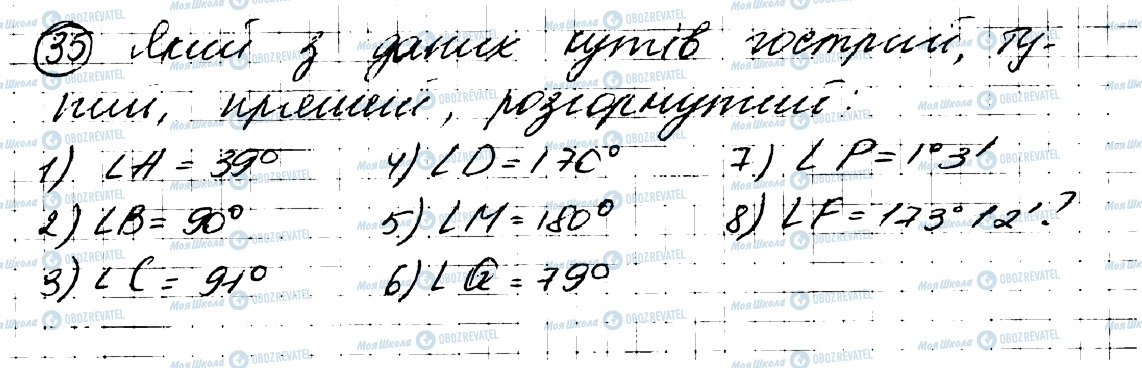 35 Який з даних кутів гострий, ту-
пий, прямий, розгорнутий:
1) ∠A = 39° 4) ∠D = 170° 7) ∠P = 1°3'
2) ∠B = 90° 5) ∠M = 180° 8) ∠F = 173°12'?
3) ∠C = 91° 6) ∠Q = 79°